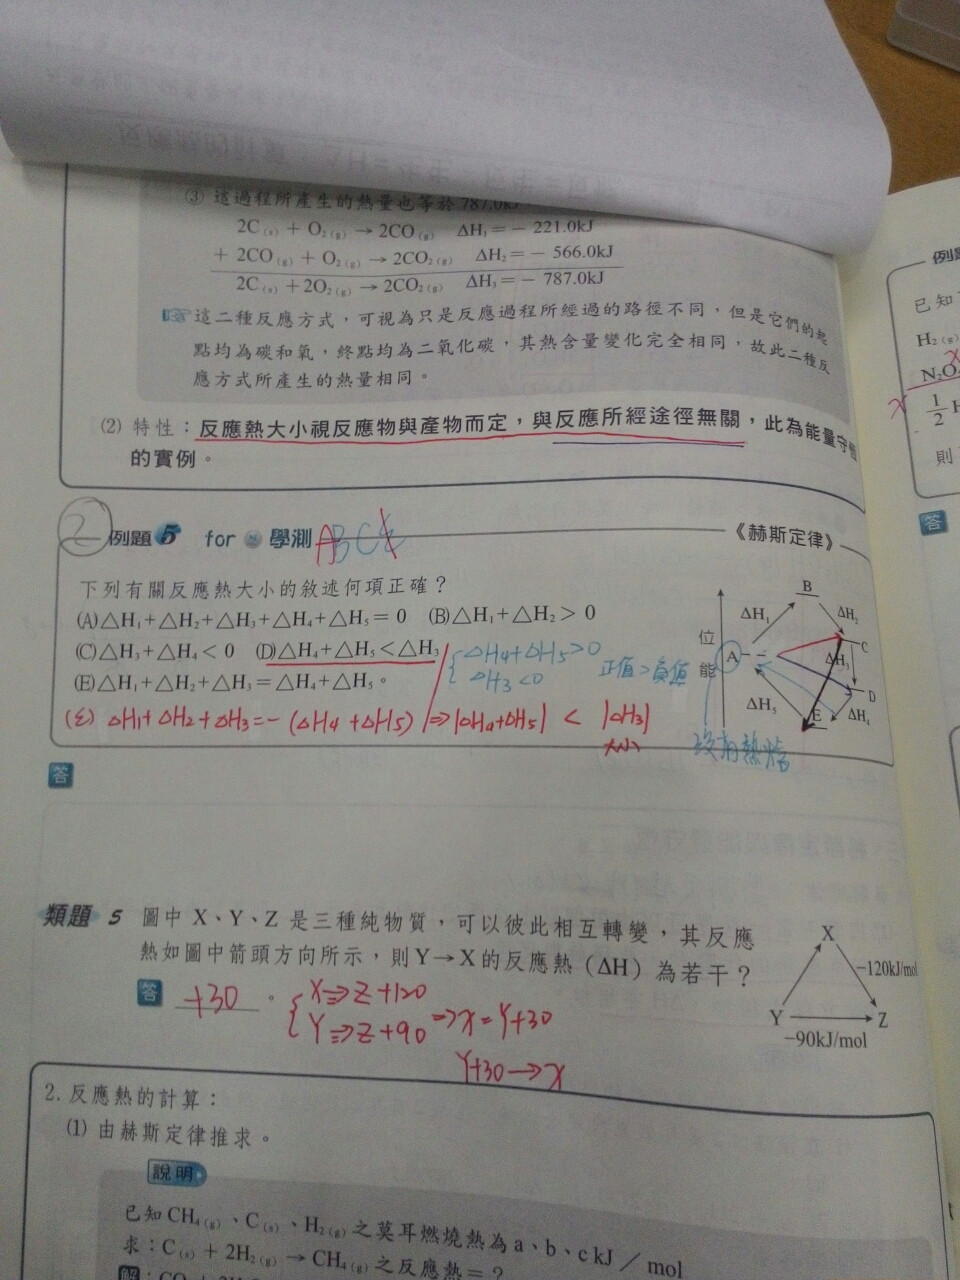 ③ 這過程所產生的熱量也等於 787.0kJ
2C(s) + O₂(g) → 2CO(g) ΔH₁ = − 221.0kJ
+ 2CO(g) + O₂(g) → 2CO₂(g) ΔH₂ = − 566.0kJ
2C(s) + 2O₂(g) → 2CO₂(g) ΔH₃ = − 787.0kJ
這二種反應方式，可視為只是反應過程所經過的路徑不同，但是它們的起
點均為碳和氧，終點均為二氧化碳，其熱含量變化完全相同，故此二種反
應方式所產生的熱量相同。
(2) 特性：反應熱大小視反應物與產物而定，與反應所經途徑無關，此為能量守恆
的實例。
2
例題 5 for 學測 ABC 《赫斯定律》
下列有關反應熱大小的敘述何項正確？
(A)△H₁+△H₂+△H₃+△H₄+△H₅=0 (B)△H₁+△H₂>0
(C)△H₃+△H₄<0 (D)△H₄+△H₅<△H₃
(E)△H₁+△H₂+△H₃=△H₄+△H₅。
{ △H4+△H5>0
△H3<0
正值>負值
(E) △H1+△H2+△H3=−(△H4+△H5) ⇒|△H4+△H5| < |△H3|
大小
位
能
A
B
C
D
E
ΔH₁
ΔH₂
ΔH₃
ΔH₄
ΔH₅
答
類題 5 圖中 X、Y、Z 是三種純物質，可以彼此相互轉變，其反應
熱如圖中箭頭方向所示，則 Y→X 的反應熱 (ΔH) 為若干？
答 +30 。
{ X⇒Z+120
Y⇒Z+90 ⇒X=Y+30
Y+30→X
X
−120kJ/mol
Y
Z
−90kJ/mol
2. 反應熱的計算：
(1) 由赫斯定律推求。
說明
已知 CH₄(g)、C(s)、H₂(g) 之莫耳燃燒熱為 a、b、c kJ／mol
求：C(s) + 2H₂(g) → CH₄(g) 之反應熱=？
解
例題
已知
H₂(g)
N₂O
1/2 H
則
答